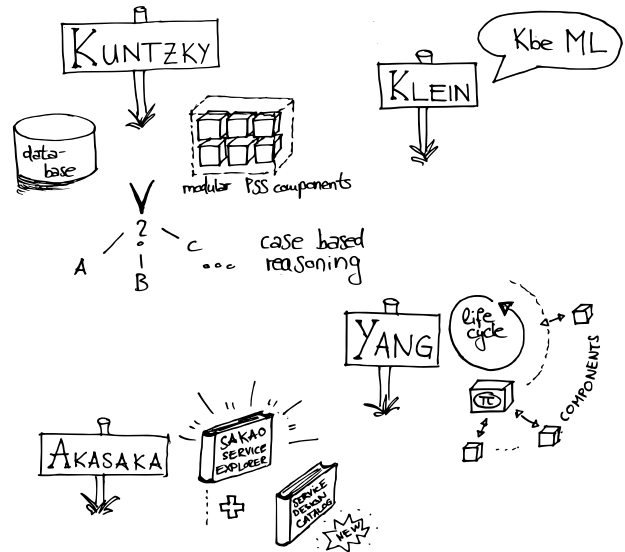 KUNTZKY
Kbe ML
KLEIN
data-
base
modular PSS components
?
A
B
C
...
case based
reasoning
YANG
life
cycle
COMPONENTS
AKASAKA
SAKAO
SERVICE
EXPLORER
+
SERVICE
DESIGN
CATALOG
NEW